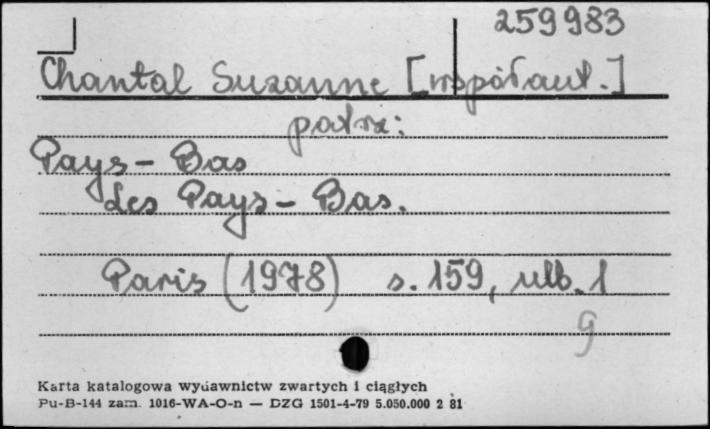 259983
Chantal Suzanne [współaut.]
patrz:
Pays-Bas
Les Pays-Bas.
Paris (1978) s. 159, ulb. 1
9
Karta katalogowa wydawnictw zwartych i ciągłych
Pu-B-144 zam. 1016-WA-O-n — DZG 1501-4-79 5.050.000 2 81